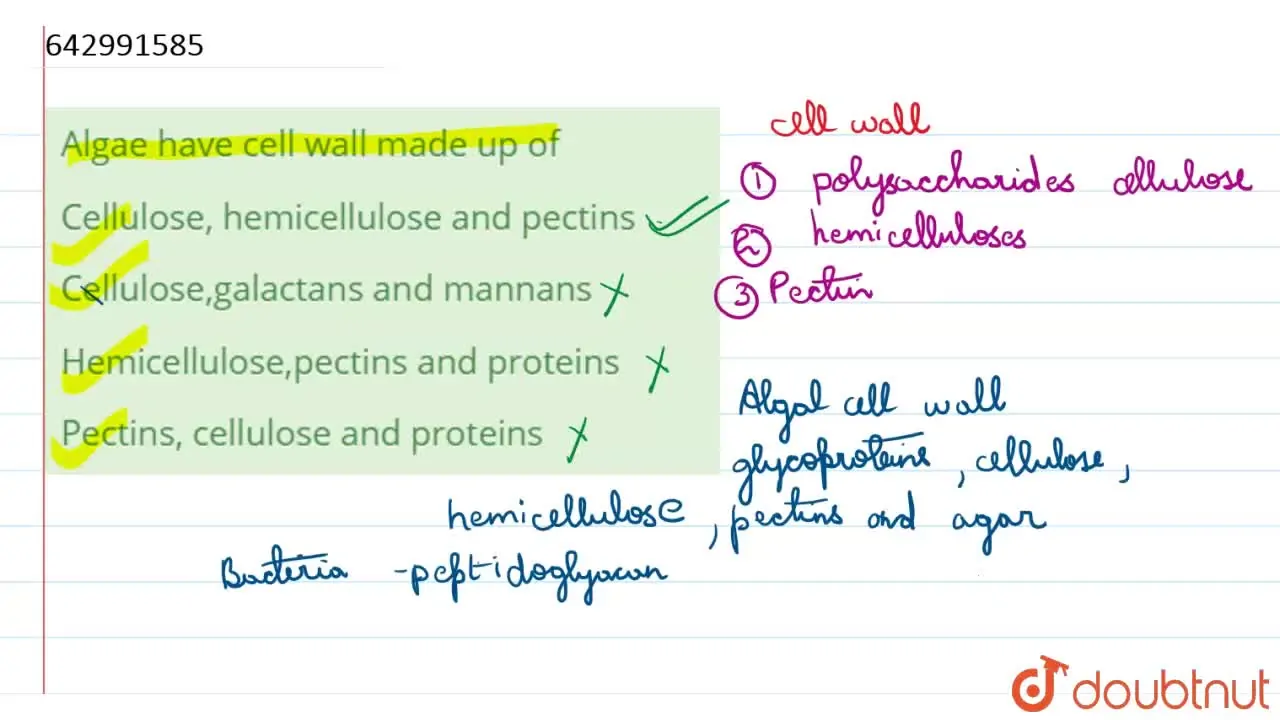 642991585
Algae have cell wall made up of
Cellulose, hemicellulose and pectins
Cellulose,galactans and mannans
Hemicellulose,pectins and proteins
Pectins, cellulose and proteins
cell wall
1 polysaccharides cellulose
2 hemicelluloses
3 Pectin
Algal cell wall
glycoproteins, cellulose,
hemicellulose, pectins and agar
Bacteria -peptidoglyacan
doubtnut